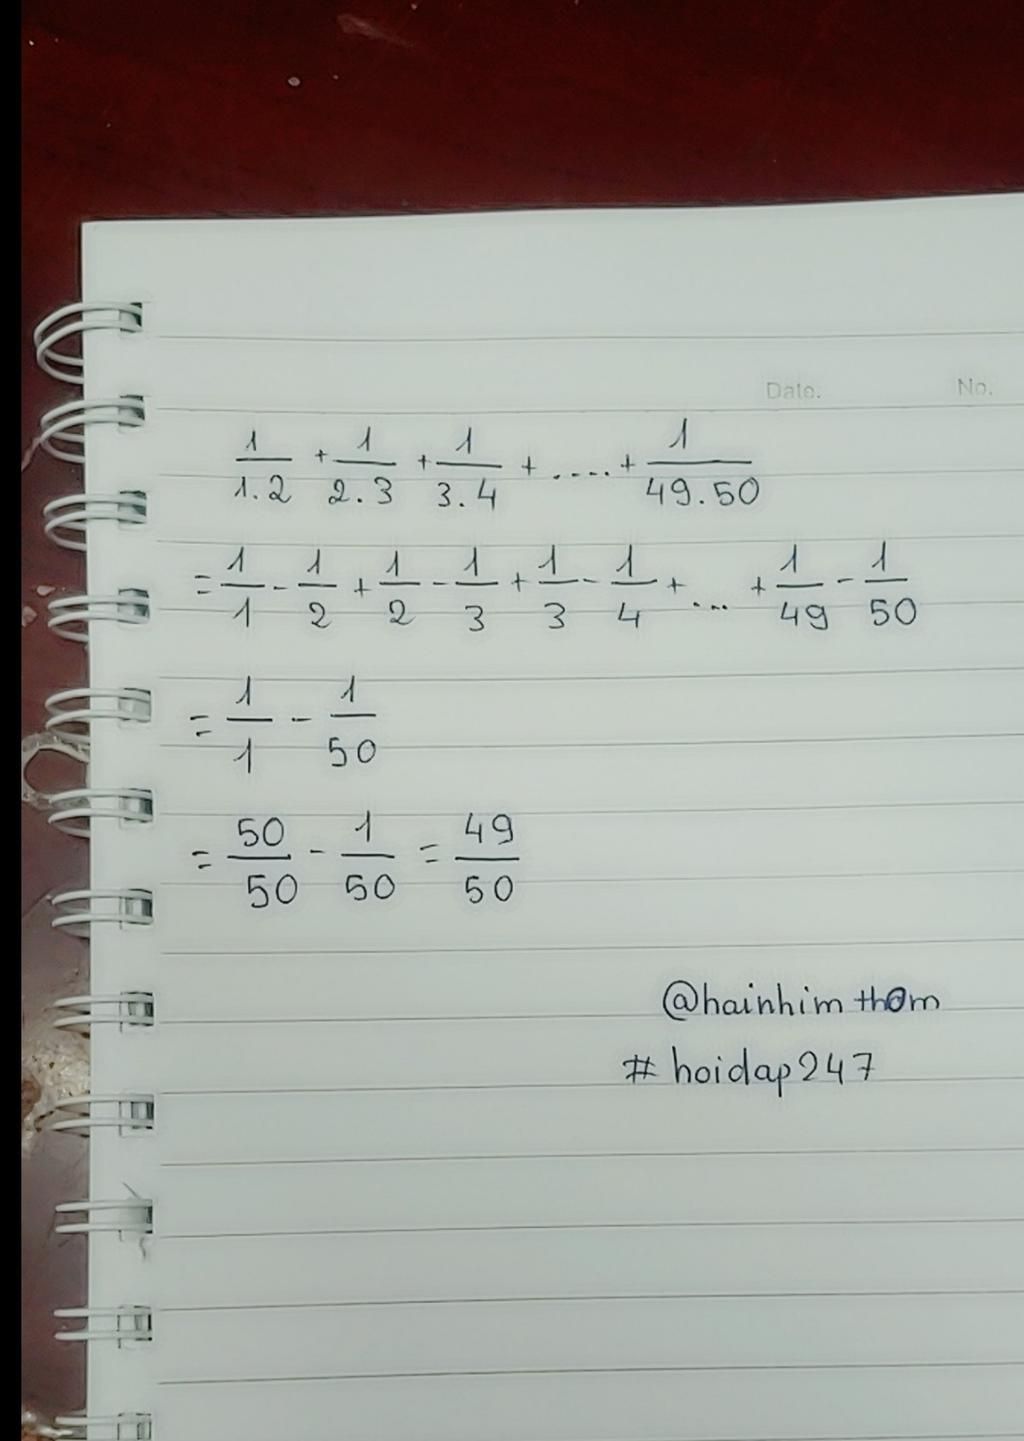 Date. No.
1/1.2 + 1/2.3 + 1/3.4 + ..... + 1/49.50
= 1/1 - 1/2 + 1/2 - 1/3 + 1/3 - 1/4 + ... + 1/49 - 1/50
= 1/1 - 1/50
= 50/50 - 1/50 = 49/50
@hainhim thom
# hoidap247